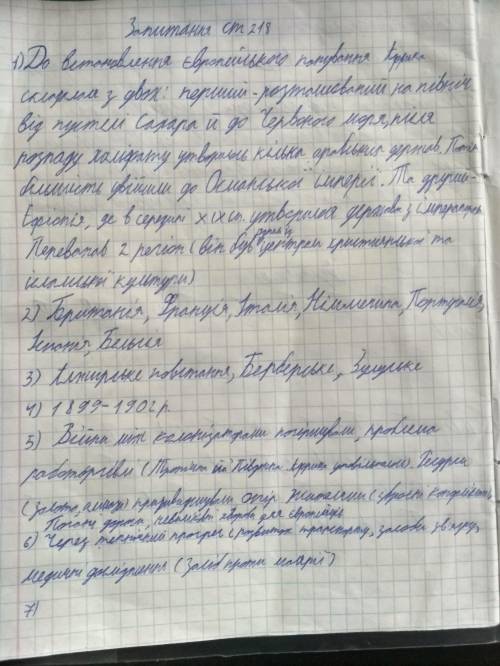 Запитання ст 218
1) До встановлення європейського панування Африка
складалася з двох: перший - розташований на північ
від пустелі Сахара й до Червоного моря, після
розпаду халіфату утворилось кілька арабських держав. Потім
більшість увійшли до Османської імперії. Та другий -
Ефіопія, де в середині XIX ст. утворилася держава з імператором
Переважав 2 регіон (він був одним із центрів християнської та
ісламської культури)
2) Британія, Франція, Італія, Німеччина, Португалія,
Іспанія, Бельгія
3) Алжирське повстання, Берберське, Зулуське
4) 1899-1902 р.
5) Війни між колонізаторами погіршували, проблема
работоргівлі Південна Африка Ресурси
(золото, алмази)
Погані дороги, невиліковні хвороби для європейців
6) Через технічний прогрес розвиток транспорту, засоби зв
медичні дослідження (Засіб проти малярії)
7)